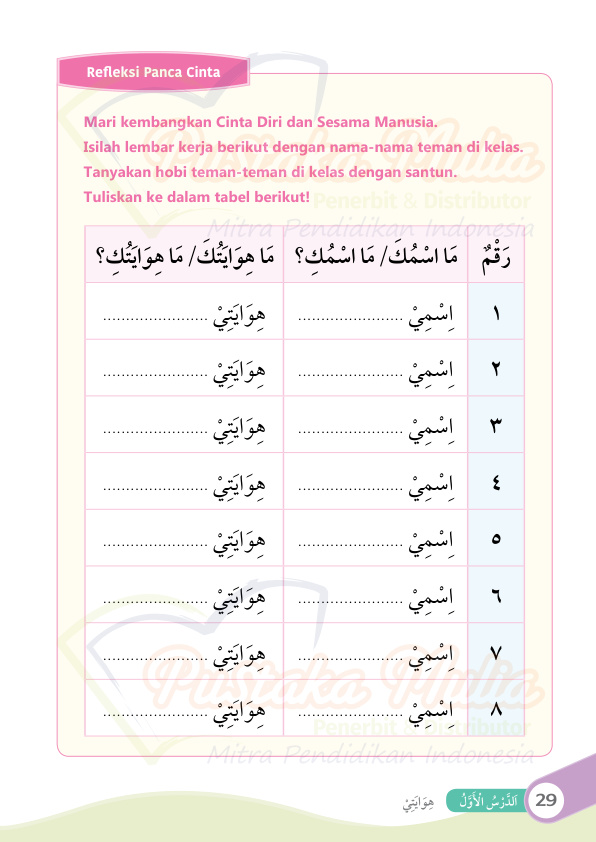 Refleksi Panca Cinta
Mari kembangkan Cinta Diri dan Sesama Manusia.
Isilah lembar kerja berikut dengan nama-nama teman di kelas.
Tanyakan hobi teman-teman di kelas dengan santun.
Tuliskan ke dalam tabel berikut!
رَقْمٌ مَا اسْمُكَ/ مَا اسْمُكِ؟ مَا هِوَايَتُكَ/ مَا هِوَايَتُكِ؟
١ اِسْمِيْ ....................... هِوَايَتِيْ .......................
٢ اِسْمِيْ ....................... هِوَايَتِيْ .......................
٣ اِسْمِيْ ....................... هِوَايَتِيْ .......................
٤ اِسْمِيْ ....................... هِوَايَتِيْ .......................
٥ اِسْمِيْ ....................... هِوَايَتِيْ .......................
٦ اِسْمِيْ ....................... هِوَايَتِيْ .......................
٧ اِسْمِيْ ....................... هِوَايَتِيْ .......................
٨ اِسْمِيْ ....................... هِوَايَتِيْ .......................
Pustaka Mulia
Penerbit & Distributor
Mitra Pendidikan Indonesia
Pustaka Mulia
Penerbit & Distributor
Mitra Pendidikan Indonesia
29 اَلدَّرْسُ الْأَوَّلُ هِوَايَتِيْ